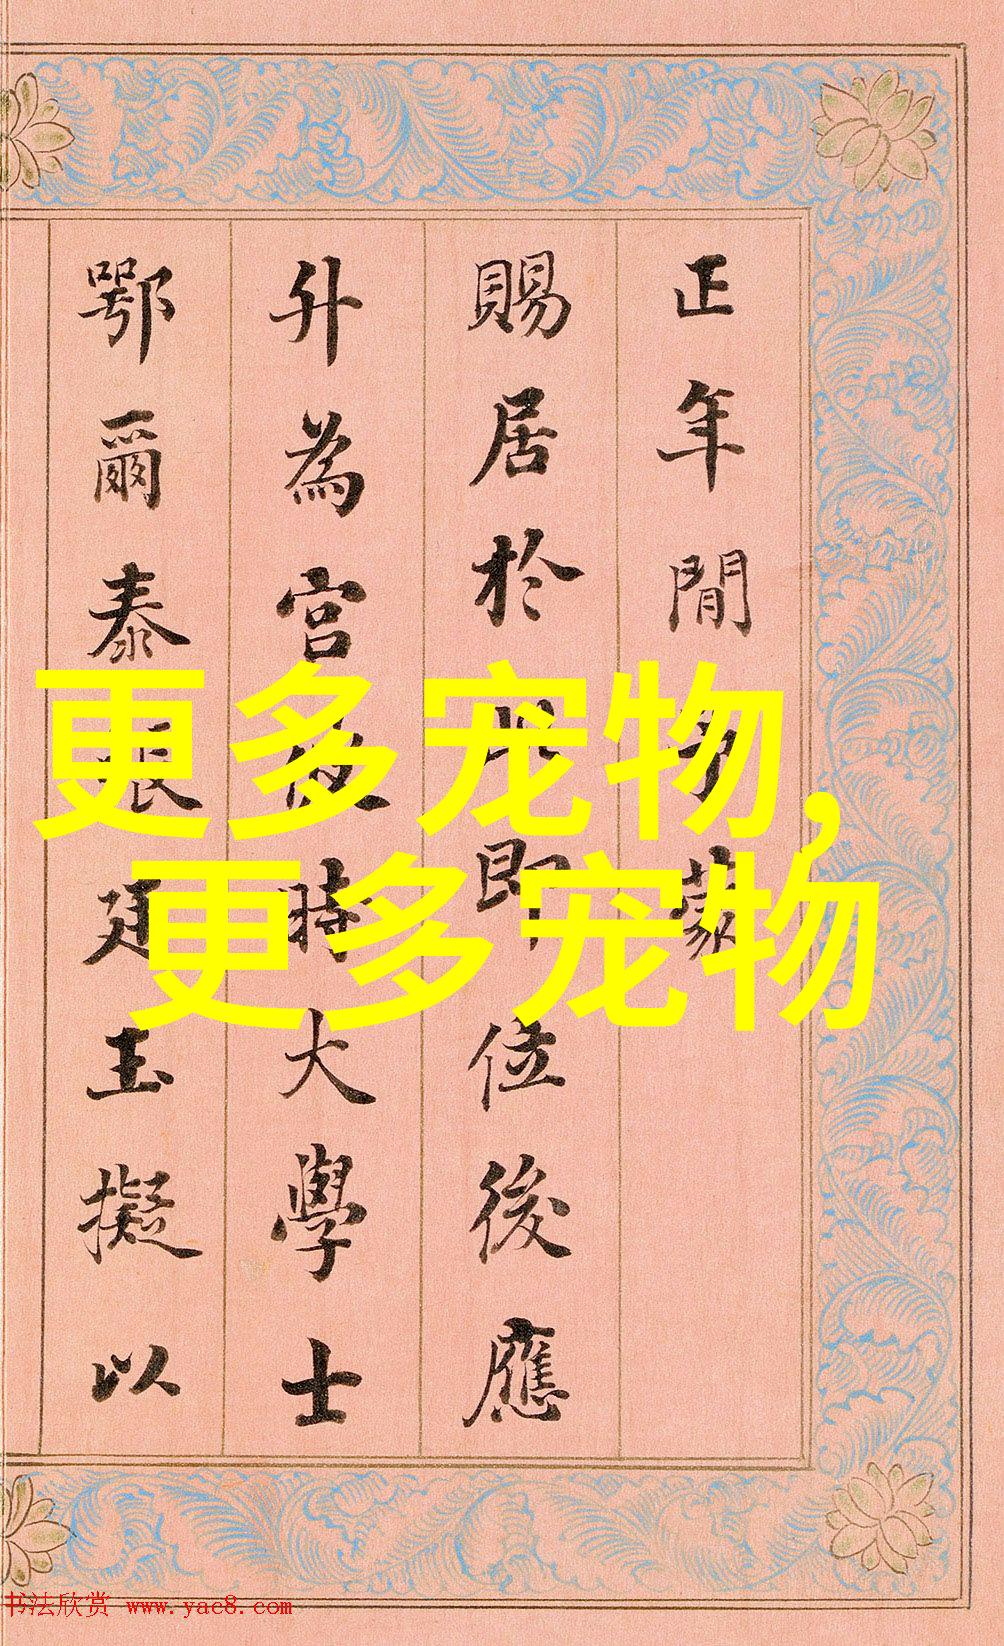 正年閒蒙
賜居於此即位後應
升為宮彼時大學士
鄂爾泰張廷玉擬以
更多宠物,
更多宠物
书法欣赏 www.yac8.com